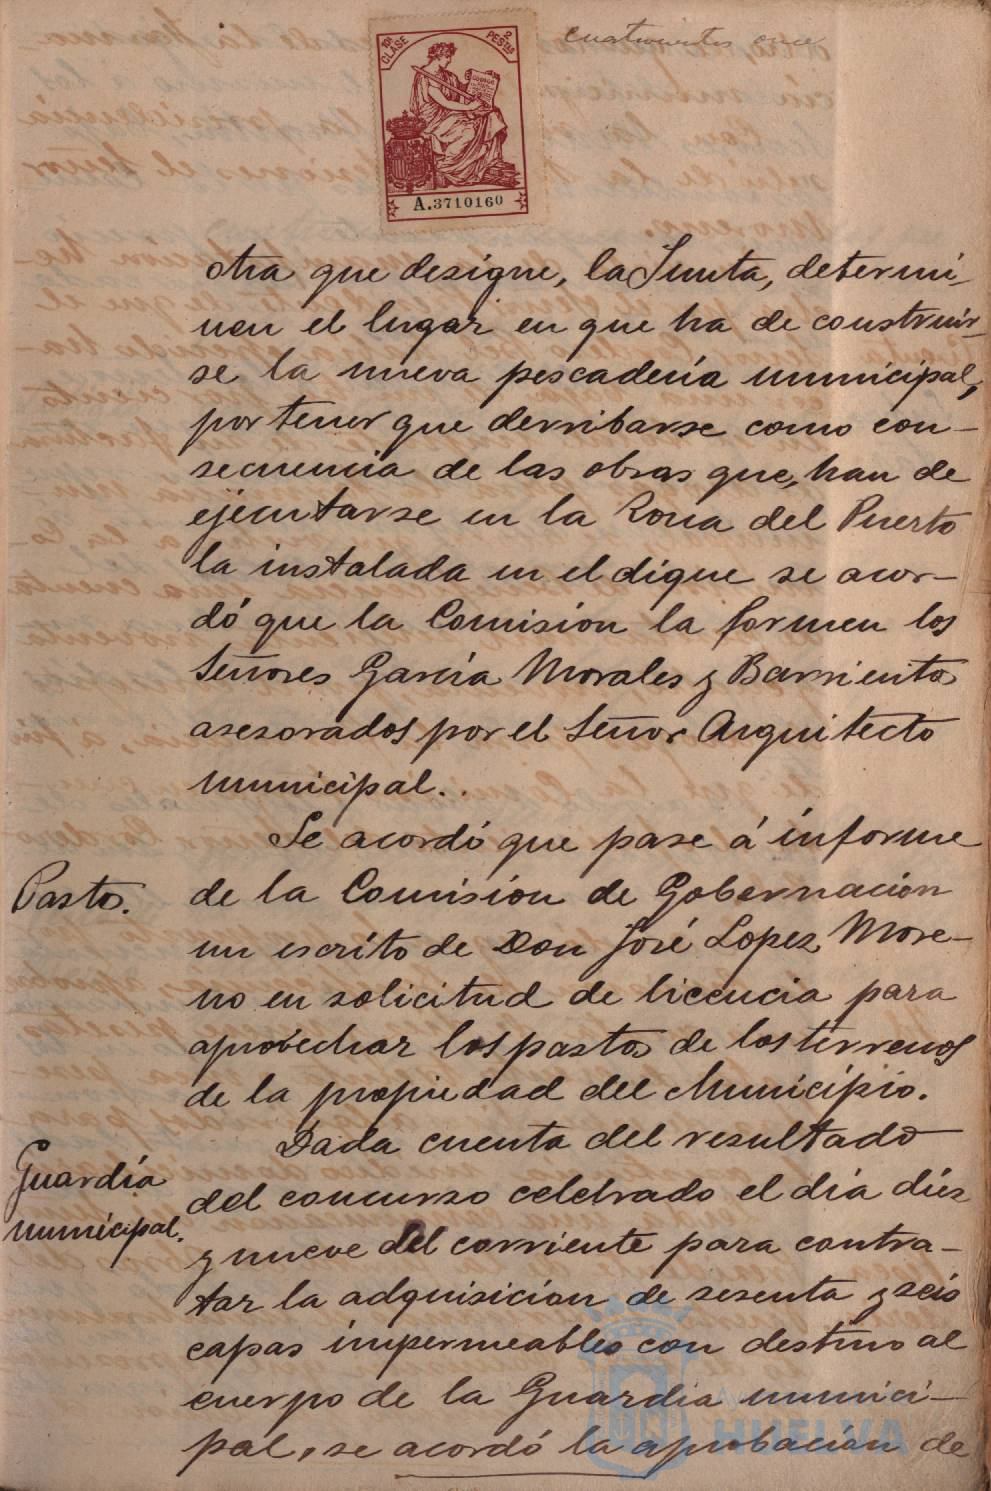 cuatrocientos once
10ª CLASE
2 PESTAS
A.3710160
otra que designe, la Junta, determi-
nen el lugar en que ha de construir-
se la nueva pescadería municipal,
por tener que derribarse como con-
secuencia de las obras que, han de
ejecutarse en la Zona del Puerto
la instalada en el dique se acor-
dó que la Comisión la formen los
Señores García Morales y Barrientos
asesorados por el Señor Arquitecto
municipal..
Se acordó que pase á informe
Pastos.
de la Comisión de Gobernación
un escrito de Don José Lopez More-
no en solicitud de licencia para
aprovechar los pastos de los terrenos
de la propiedad del Municipio.
Dada cuenta del resultado
Guardia
municipal.
del concurso celebrado el día diez
y nueve del corriente para contra-
tar la adquisición de sesenta y seis
capas impermeables con destino al
cuerpo de la Guardia munici-
pal, se acordó la aprobación de
HUELVA